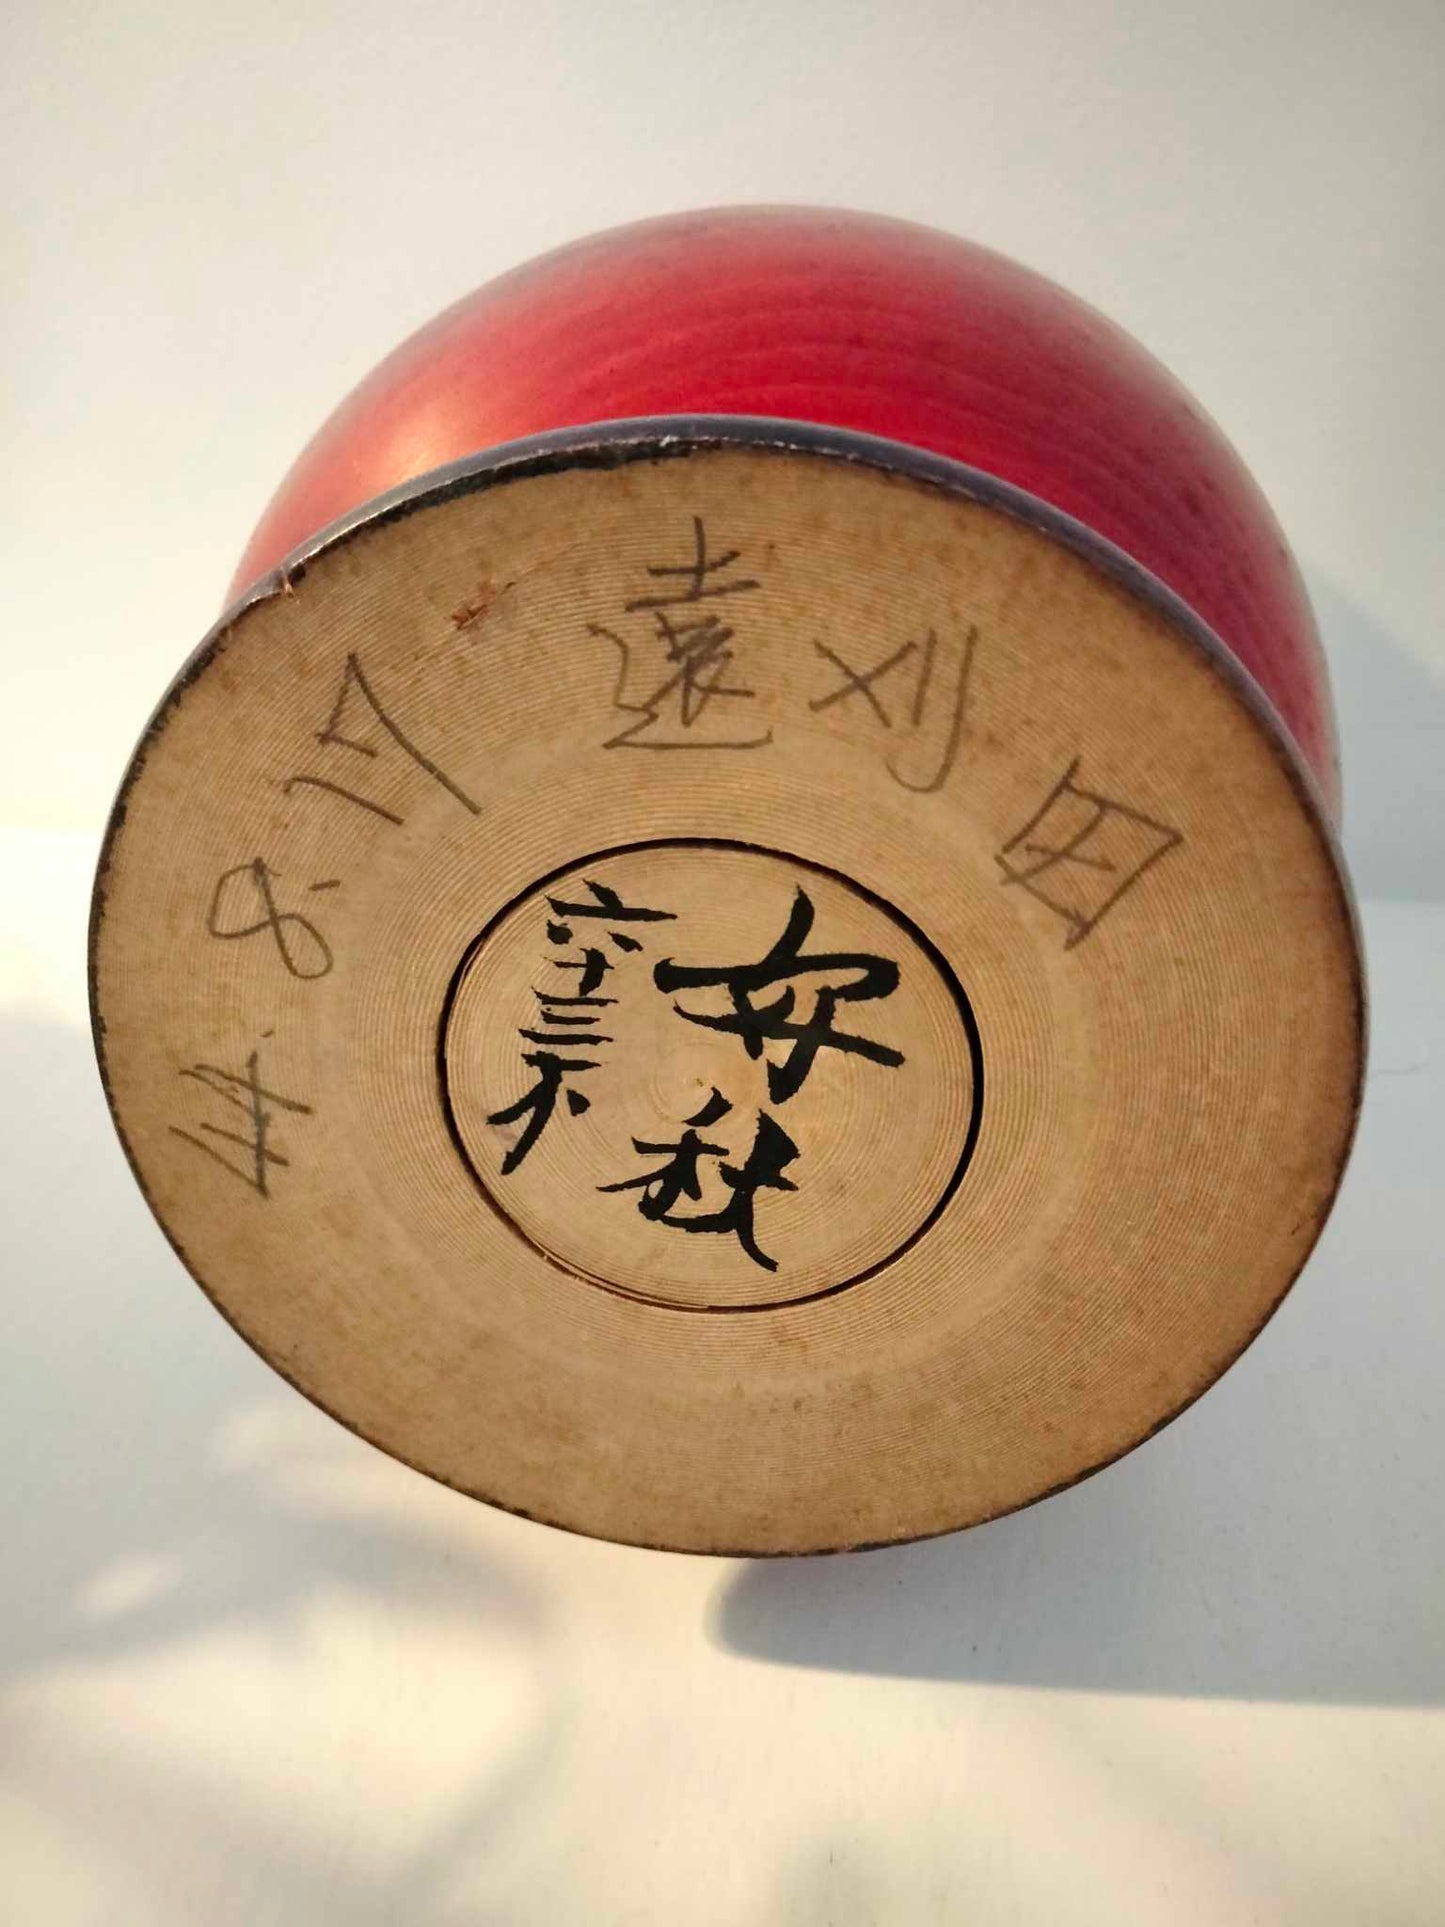 44.8.17
遠刈田
安秋
六十三才